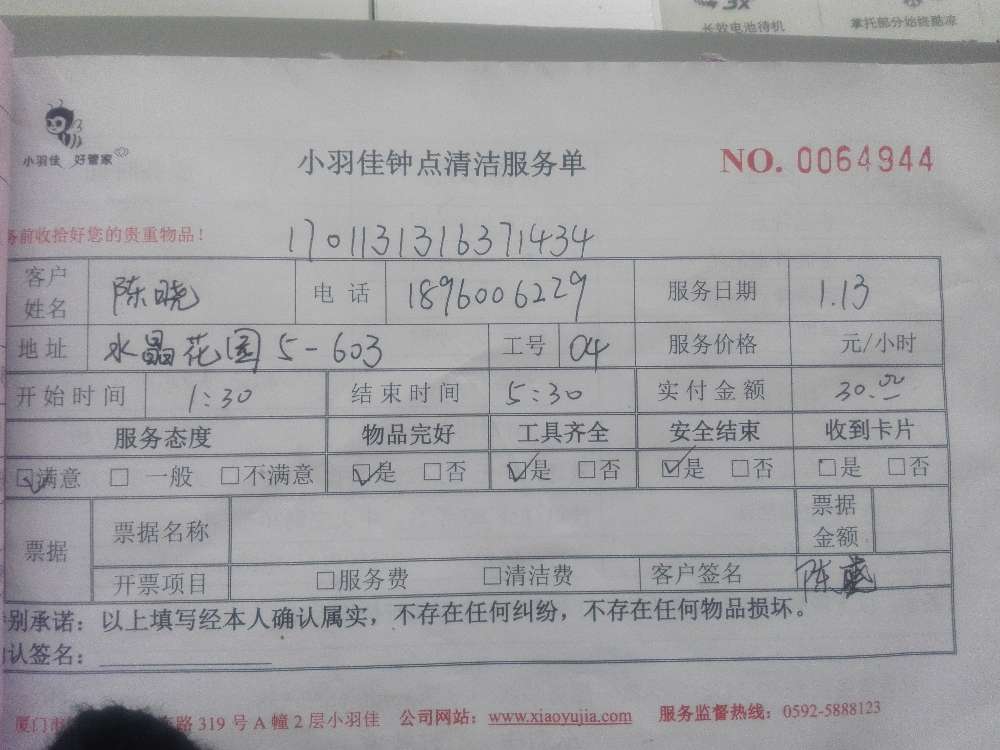 3X
长效电池待机
掌托部分始终酷凉
小羽佳 好管家
小羽佳钟点清洁服务单
NO. 0064944
务前收拾好您的贵重物品！
1701131316371434
客户姓名 陈晓 电话 1896006229 服务日期 1.13
地址 水晶花园5-603 工号 04 服务价格 元/小时
开始时间 1:30 结束时间 5:30 实付金额 30.00
服务态度 物品完好 工具齐全 安全结束 收到卡片
☑满意 □一般 □不满意 ☑是 □否 ☑是 □否 ☑是 □否 □是 □否
票据 票据名称 票据金额
开票项目 □服务费 □清洁费 客户签名 陈
别承诺：以上填写经本人确认属实，不存在任何纠纷，不存在任何物品损坏。
认签名：
厦门市 路319号A幢2层小羽佳 公司网站：www.xiaoyujia.com 服务监督热线：0592-5888123